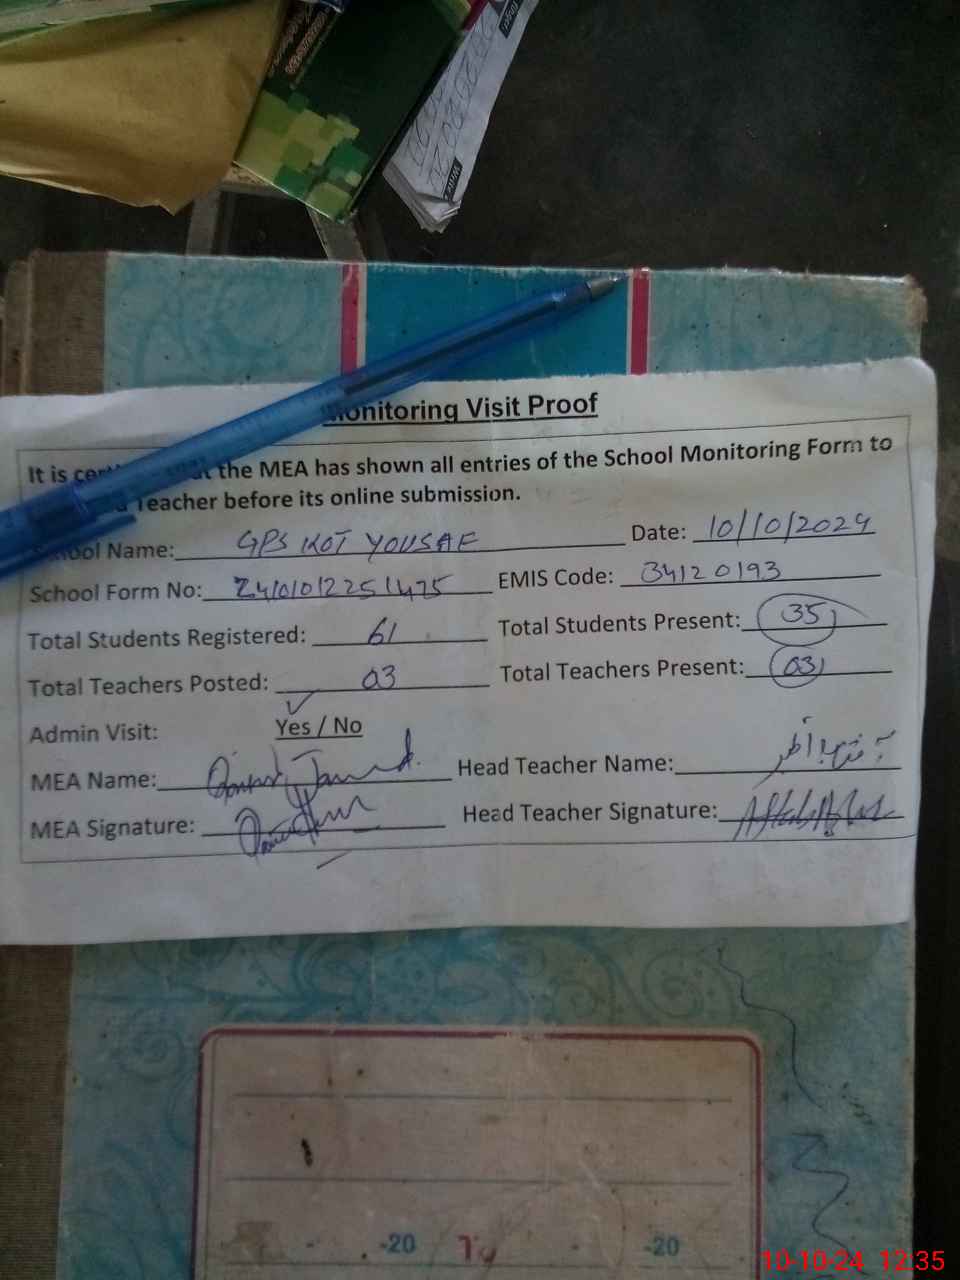 Monitoring Visit Proof
It is the MEA has shown all entries of the School Monitoring Form to
Teacher before its online submission.
School Name: GPS KOT YOUSAF Date: 10/10/2024
School Form No: EMIS Code: 34120193
Total Students Registered: 61 Total Students Present: 35
Total Teachers Posted: 03 Total Teachers Present: 03
Admin Visit: Yes / No
MEA Name: Head Teacher Name:
MEA Signature: Head Teacher Signature:
-20 To -20
10-10-24 12:35